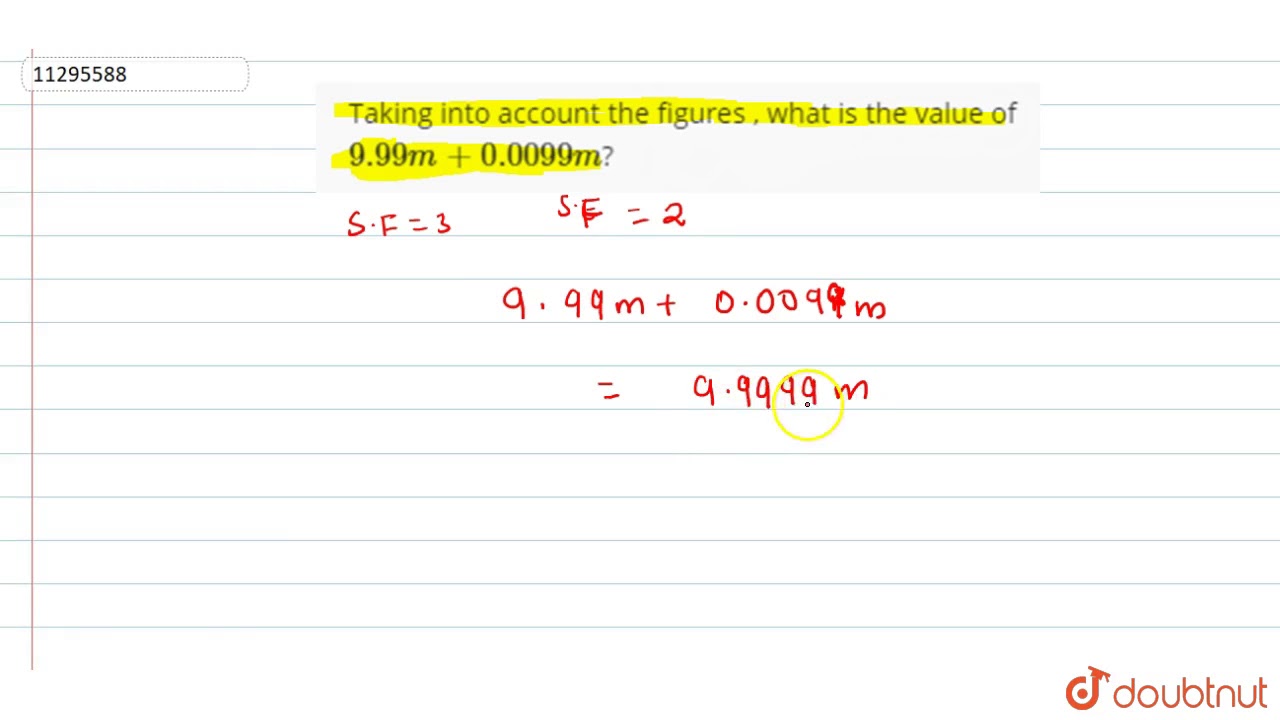 11295588
Taking into account the figures , what is the value of
9.99m + 0.0099m?
S.F = 3 S.F = 2
9.99m + 0.0099m
= 9.9999 m
doubtnut